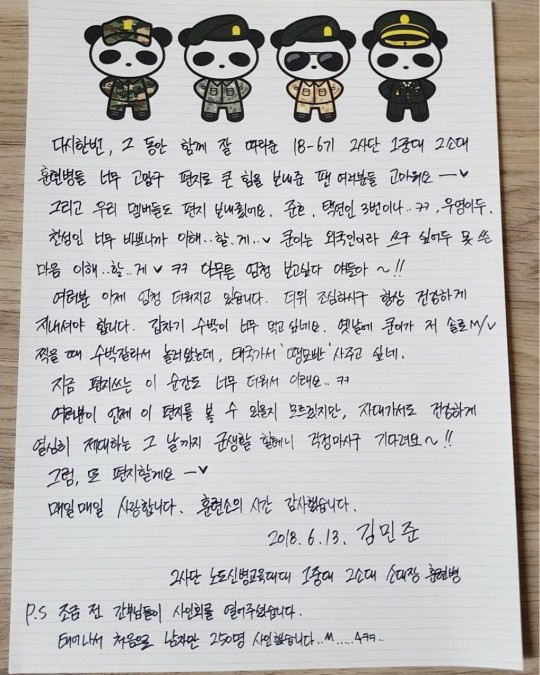 다시한번, 그 동안 함께 잘 따라준 18-6기 2사단 1중대 2소대
훈련병들 너무 고맙구 편지로 큰 힘을 보내준 팬 여러분들 고마워요 ―♥
그리고 우리 멤버들도 편지 보내줬어요. 준호, 택연인 3번이나..ㅋㅋ, 우영이두.
찬성인 너무 바쁘니까 이해..할.게..♥ 쿤이는 외국인이라 쓰구 싶어두 못 쓴
마음 이해..할..게 ♥ ㅋㅋ 아무튼 엄청 보고싶다 얘들아 ~!!
여러분 이제 엄청 더워지고 있습니다. 더위 조심하시구 항상 건강하게
지내셔야 합니다. 갑자기 수박이 너무 먹고 싶네요. 옛날에 쿤이가 저 솔로 M/V
찍을 때 수박잘라서 놀러왔는데, 태국가서 '땡모반' 사주고 싶네.
지금 편지쓰는 이 순간도 너무 더워서 이래요.. ㅋㅋ
여러분이 언제 이 편지를 볼 수 있을지 모르겠지만, 자대가서도 건강하게
열심히 제대하는 그 날까지 군생활 할테니 걱정마시구 기다려요~!!
그럼, 또 편지할게요 ―♥
매일매일 사랑합니다. 훈련소의 시간 감사했습니다.
2018. 6. 13. 김민준
2사단 노도신병교육대대 1중대 2소대 소대장 훈련병
P.S 조금 전 간부님들이 사인회를 열어주셨습니다.
태어나서 처음으로 남자만 250명 사인했습니다..^^.....ㅋㅋ..